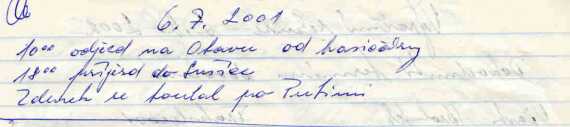 6. 7. 2001
10⁰⁰ odjezd na Otavu od hasičárny
18⁰⁰ příjezd do Sušice
Zdenek se toulal po Putimi